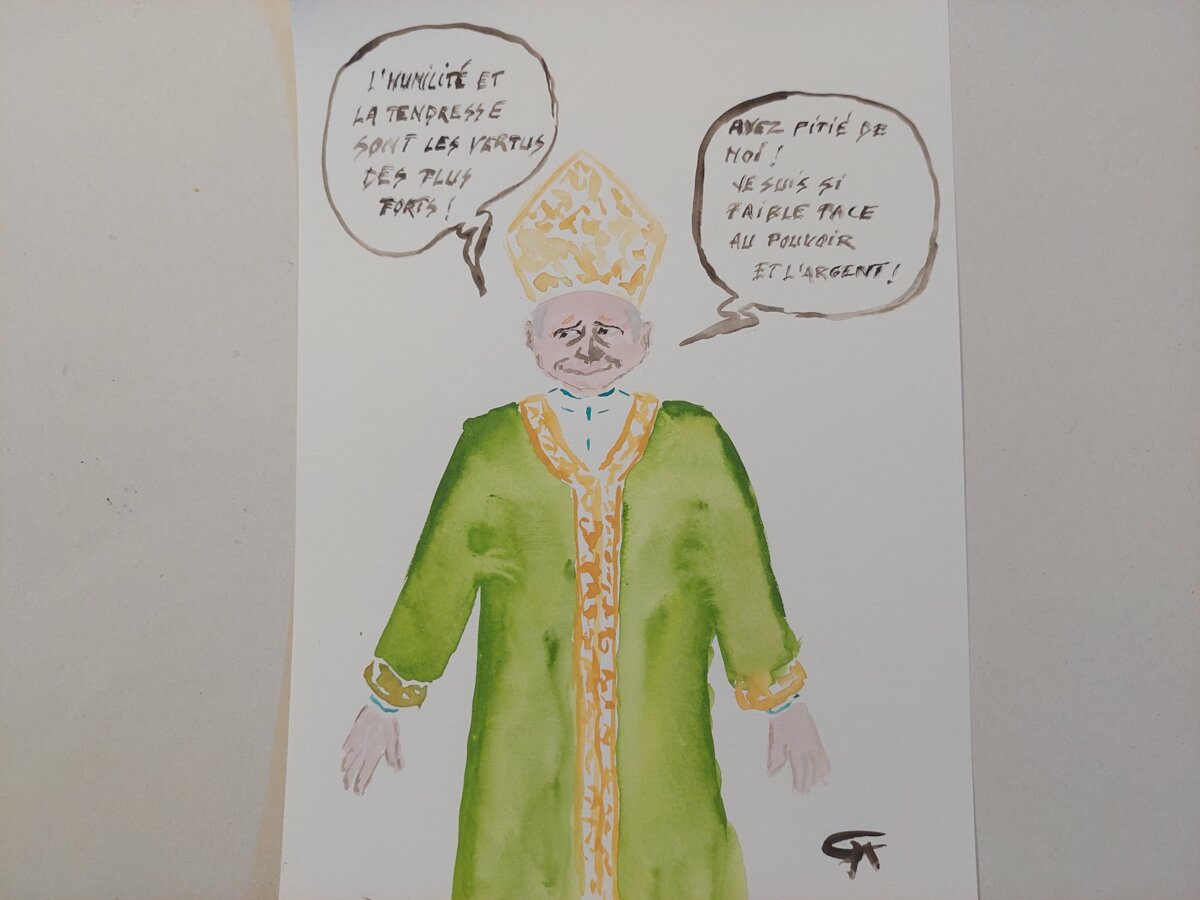 L'HUMILITÉ ET
LA TENDRESSE
SONT LES VERTUS
DES PLUS
FORTS!
AYEZ PITIÉ DE
MOI!
JE SUIS SI
FAIBLE FACE
AU POUVOIR
ET L'ARGENT!